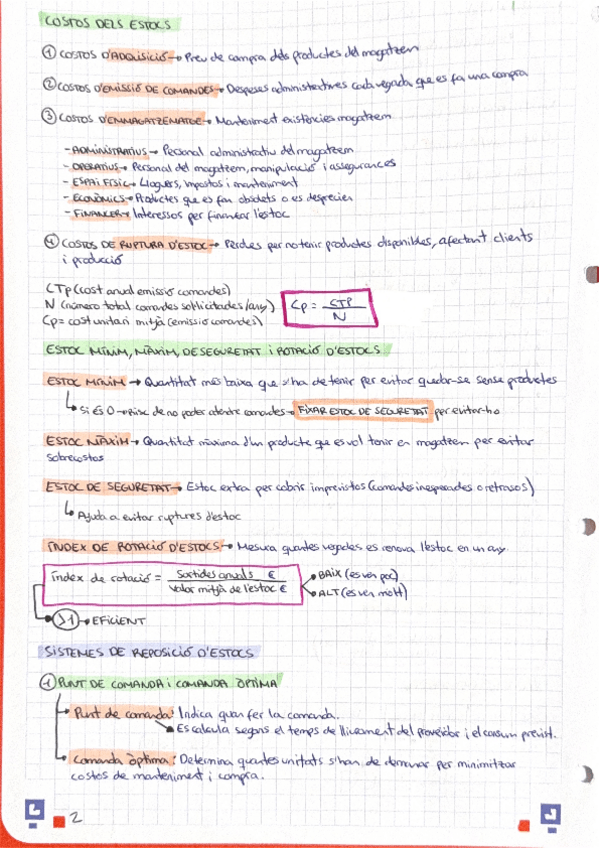 COSTOS DELS ESTOCS
① COSTOS D'ADQUISICIÓ → Preu de compra dels productes del magatzem
② COSTOS D'EMISSIÓ DE COMANDES → Despeses administratives cada vegada que es fa una compra
③ COSTOS D'EMMAGATZEMATGE → Manteniment existències magatzem
- ADMINISTRATIUS → Personal administratiu del magatzem
- OPERATIUS → Personal del magatzem, manipulació i assegurances
- ESPAI FÍSIC → Lloguers, impostos i manteniment
- ECONÒMICS → Productes que es fan obsolets o es desprecien
- FINANCER → Interessos per finançar l'estoc
④ COSTOS DE RUPTURA D'ESTOC → Pèrdues per no tenir productes disponibles, afectant clients
i producció
CTp (cost anual emissió comandes)
N (número total comandes sol·licitades/any)
Cp = cost unitari mitjà (emissió comandes)
Cp = CTP / N
ESTOC MÍNIM, MÀXIM, DE SEGURETAT i ROTACIÓ D'ESTOCS
ESTOC MÍNIM → Quantitat més baixa que s'ha de tenir per evitar quedar-se sense productes
↳ Si és 0 → Risc de no poder atendre comandes → FIXAR ESTOC DE SEGURETAT per evitar-ho
ESTOC MÀXIM → Quantitat màxima d'un producte que es vol tenir en magatzem per evitar
sobrecostos
ESTOC DE SEGURETAT → Estoc extra per cobrir imprevistos (comandes inesperades o retrasos)
↳ Ajuda a evitar ruptures d'estoc
ÍNDEX DE ROTACIÓ D'ESTOCS → Mesura quantes vegades es renova l'estoc en un any
Índex de rotació = Sortides anuals € / Valor mitjà de l'estoc €
BAIX (es ven poc)
ALT (es ven molt)
>1 → EFICIENT
SISTEMES DE REPOSICIÓ D'ESTOCS
① PUNT DE COMANDA i COMANDA ÒPTIMA
→ Punt de comanda: Indica quan fer la comanda.
→ Es calcula segons el temps de lliurament del proveïdor i el consum previst.
→ Comanda òptima: Determina quantes unitats s'han de demanar per minimitzar
costos de manteniment i compra.
2